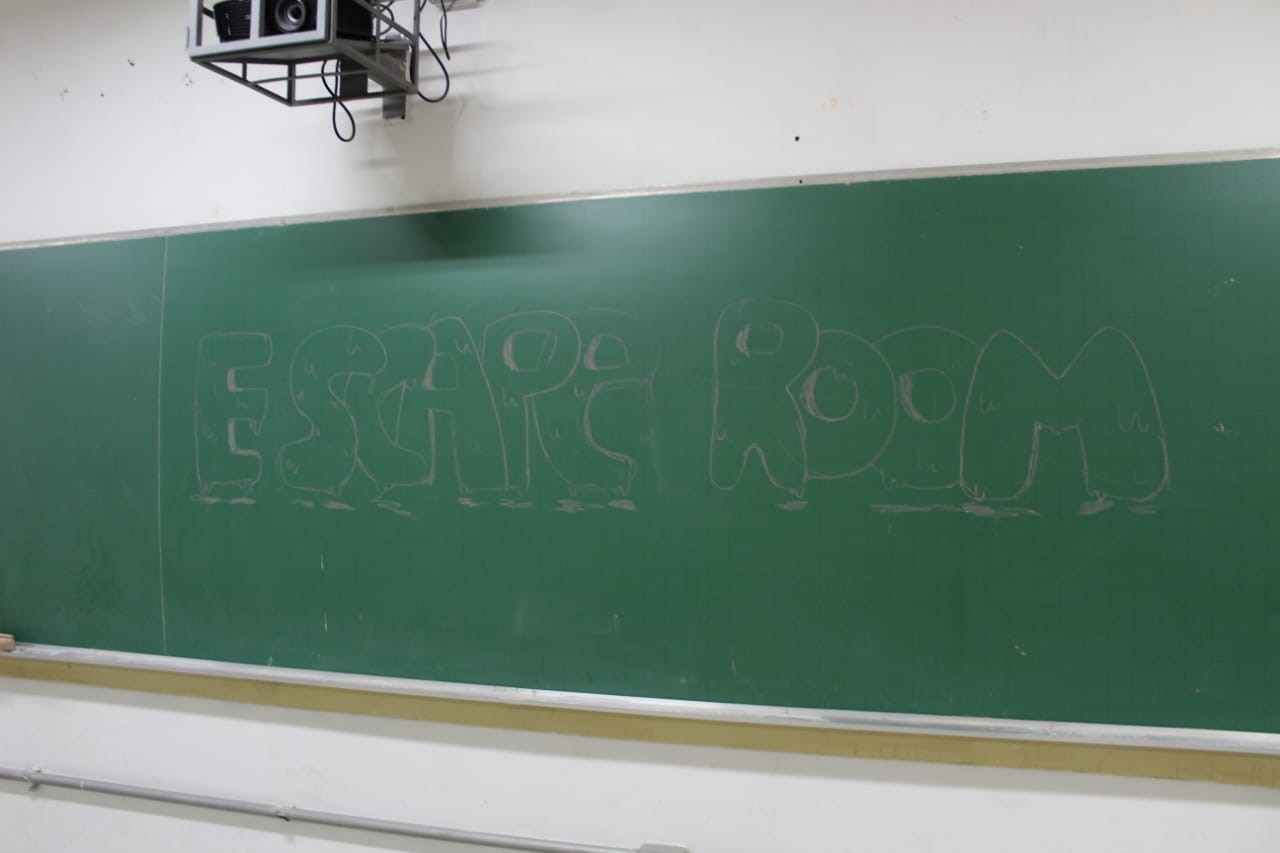 ESCAPE ROOM